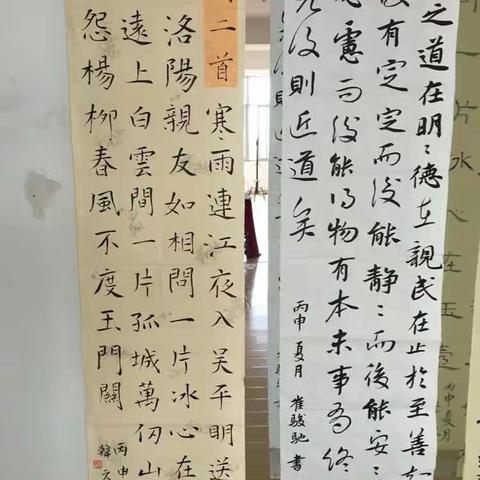 一片冰心在玉壺
丙申夏月
之道在明〻德在親民在止於至善知
有定定而後能靜〻而後能安〻
慮而後能得物有本末事有終
後則近道矣
丙申夏月 崔駿馳書
二首 寒雨連江夜入吴平明送
洛陽親友如相問一片冰心在
遠上白雲間一片孤城萬仞山
怨楊柳春風不度玉門關
丙申
韓